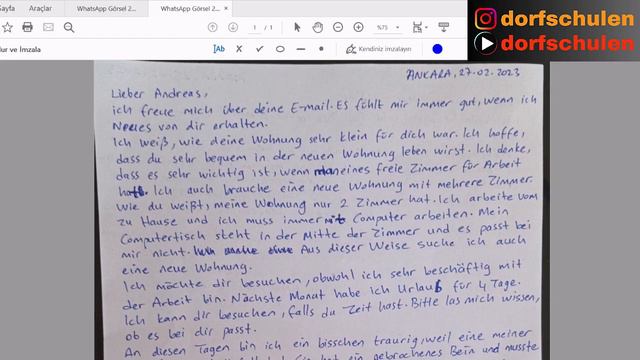 Sayfa Araçlar WhatsApp Görsel 2... WhatsApp Görsel 2... ×
1 / 1 %75
dur ve İmzala Ab Kendiniz imzalayın
dorfschulen
dorfschulen
ANKARA, 27.02.2023
Lieber Andreas,
ich freue mich über deine E-mail. Es föhlt mir immer gut, wenn ich
Neues von dir erhalten.
Ich weiß, wie deine Wohnung sehr klein für dich war. Ich hoffe,
dass du sehr bequem in der neuen Wohnung leben wirst. Ich denke,
dass es sehr wichtig ist, wenn man eines freie Zimmer für Arbeit
hat. Ich auch brauche eine neue Wohnung mit mehrere Zimmer.
Wie du weißt, meine Wohnung nur 2 Zimmer hat. Ich arbeite vom
zu Hause und ich muss immer mit Computer arbeiten. Mein
Computertisch steht in der Mitte der Zimmer und es passt bei
mir nicht. Aus dieser Weise suche ich auch
eine neue Wohnung.
Ich möchte dir besuchen, obwohl ich sehr beschäftig mit
der Arbeit bin. Nächste Monat habe ich Urlaub für 4 Tage.
Ich kann dir besuchen, falls du Zeit hast. Bitte las mich wissen,
ob es bei dir passt.
An diesen Tagen bin ich ein bisschen traurig, weil eine meiner
ein gebrochenes Bein und musste